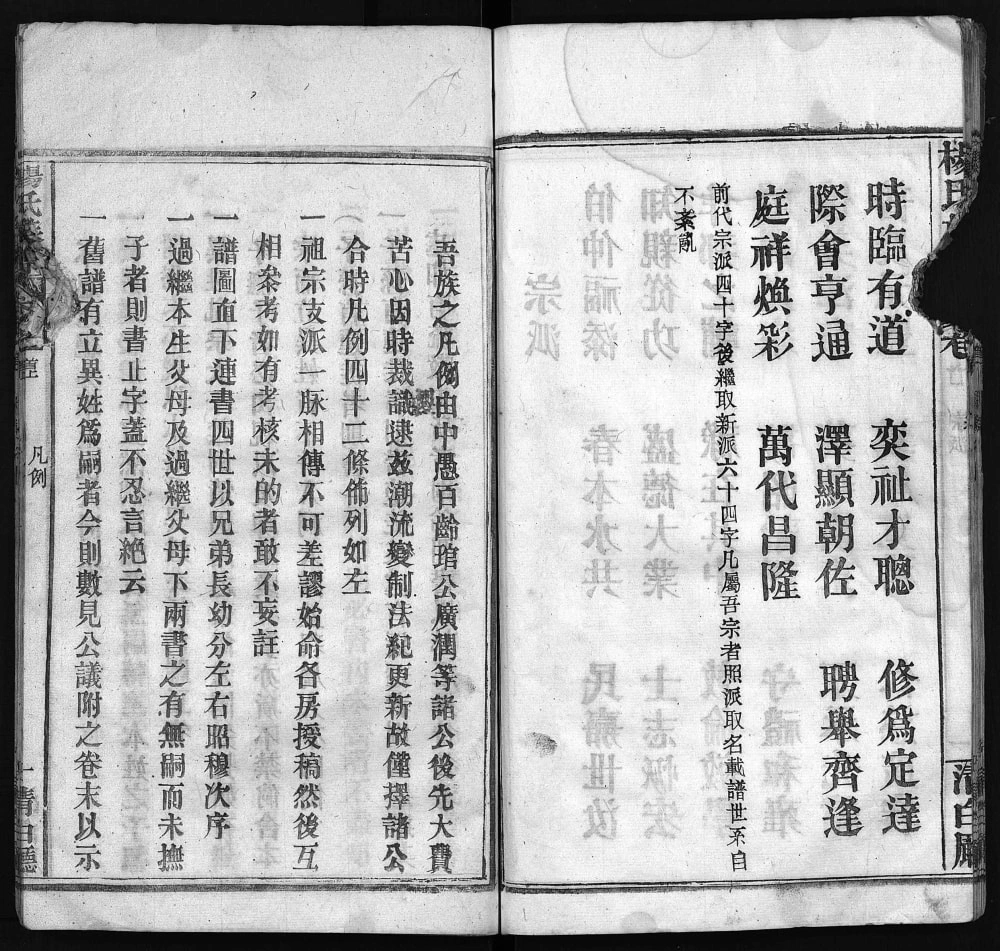 時臨有道 奕祉才聰 修爲定達
際會亨通 澤顯朝佐 聘舉齊逢
庭祥煥彩 萬代昌隆
前代宗派四十字後繼取新派六十四字凡屬吾宗者照派取名載譜世系自
不紊亂
楊氏
卷
清白
吾族之凡例由中愚百齡琯公廣潤等諸公後先大費
苦心因時裁識逮茲潮流變制法紀更新故僅擇諸公
合時凡例四十二條佈列如左
一祖宗支派一脉相傳不可差謬始命各房授稿然後互
相叅考如有考核未的者敢不妄註
一譜圖直下連書四世以兄弟長幼分左右昭穆次序
一過繼本生父母及過繼父母下兩書之有無嗣而未撫
子者則書止字蓋不忍言絶云
一舊譜有立異姓爲嗣者今則數見公議附之卷末以示
楊氏
凡例
一
清白廳